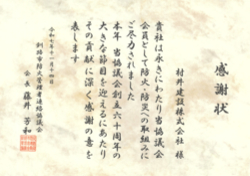 感謝状
村井建設株式会社 様
貴社は永きにわたり当協議会
会員として防火・防災への取組みに
ご尽力されました
本年 当協議会創立六十周年の
大きな節目を迎えるにあたり
その貢献に深く感謝の意を
表します
令和七年十一月十四日
釧路市防火管理者連絡協議会
会長 藤井 芳和